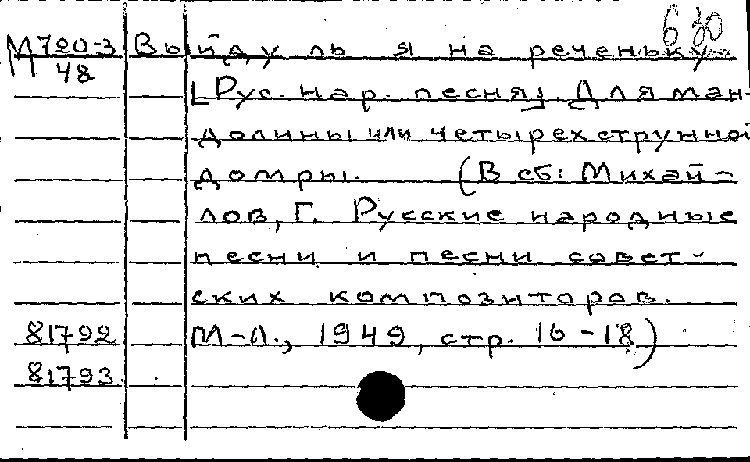 630
М 720-3 Выйду ль я на реченьку
48
[Рус. нар. песня] Для ман-
долины или четырехструнной
домры. (В сб: Михай-
лов, Г. Русские народные
песни и песни совет-
ских композиторов.
81792 М-Л., 1949, стр. 16-18)
81793